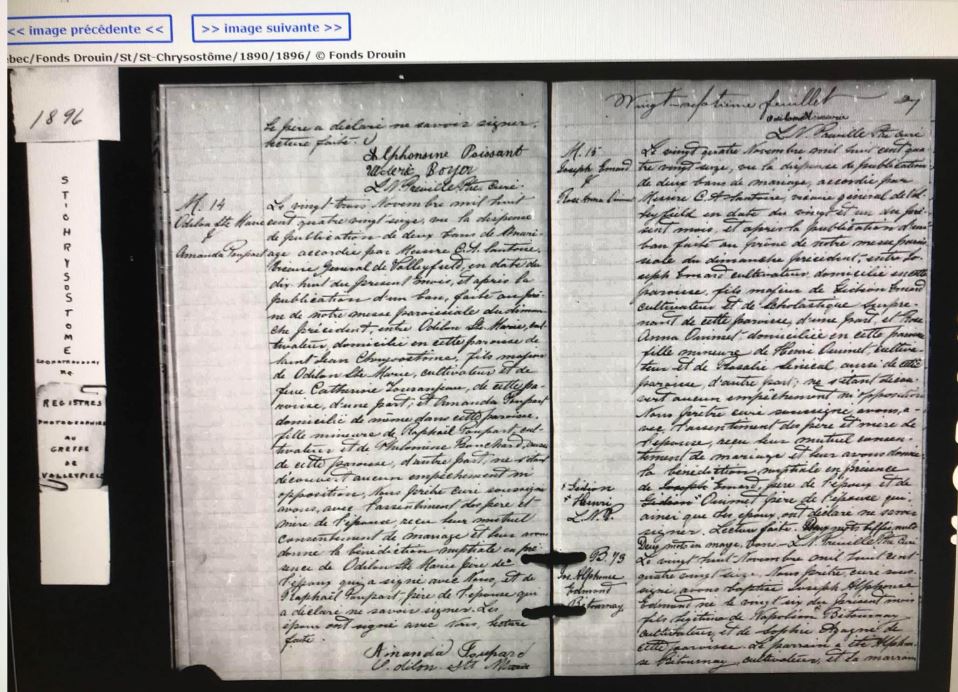 << image précédente <<
>> image suivante >>
bec/Fonds Drouin/St/St-Chrysostôme/1890/1896/ © Fonds Drouin
1896
ST CHRYSOSTOME
REGISTRES
PHOTOGRAPHIES
AU
GREFFE
DE
VALLEYFIELD
Le père a déclaré ne savoir signer.
Lecture faite.
Alphonsine Poissant
Boyer
L.N. Preville Ptre Curé
M. 14
Odilon Ste Marie
&
Amanda Poupart
Le vingt trois Novembre mil huit
cent quatre vingt seize, vu la dispense
de publication de deux bans de mari-
age accordée par Messire C.A. Santoire,
Vicaire Général de Valleyfield, en date du
dix huit du présent mois, et après la
publication d'un ban, faite au prô-
ne de notre messe paroissiale du diman-
che précédent, entre Odilon Ste Marie, cul-
tivateur, domicilié en cette paroisse de
Saint Jean Chrysostôme, fils majeur
de Odilon Ste Marie, cultivateur et de
feue Catherine de cette pa-
roisse, d'une part; et Amanda Poupart
domiciliée de même dans cette paroisse,
fille mineure de Raphaël Poupart, cul-
tivateur et de Philomène aussi
de cette paroisse, d'autre part, ne s'étant
découvert aucun empêchement ni
opposition, Nous prêtre curé soussigné
avons, avec l'assentiment des père et
mère de l'épouse reçu leur mutuel
consentement de mariage et leur avons
donné la bénédiction nuptiale en pré-
sence de Odilon Ste Marie père de
l'époux qui a signé avec Nous, et de
Raphaël Poupart, père de l'épouse qui
a déclaré ne savoir signer. Les
époux ont signé avec Nous, lecture
faite.
Amanda Poupard
Odilon Ste Marie
Vingt-septième feuillet 27
L.N. Preville Ptre Curé
M. 15
Joseph Emard
&
Rose Anna Ouimet
Le vingt quatre Novembre mil huit cent qua-
tre vingt seize, vu la dispense de publication
de deux bans de mariage, accordée par
Messire C.A. Santoire, vicaire général de Val-
leyfield en date du vingt et un du pré-
sent mois, et après la publication d'un
ban faite au prône de notre messe parois-
siale du dimanche précédent, entre Jo-
seph Emard cultivateur, domicilié en cette
paroisse, fils majeur de Gédéon Emard
cultivateur et de Scholastique Surpre-
nant de cette paroisse, d'une part, et Rose
Anna Ouimet domiciliée en cette paroisse
fille mineure de Henri Ouimet, cultiva-
teur et de Rosalie Senécal aussi de cette
paroisse d'autre part; ne s'étant décou-
vert aucun empêchement ni opposition
Nous prêtre curé soussigné avons, a-
vec l'assentiment des père et mère de
l'épouse, reçu leur mutuel consen-
tement de mariage et leur avons donné
la bénédiction nuptiale en présence
de Joseph Emard, père de l'époux et de
Gédéon Ouimet père de l'épouse qui,
ainsi que les époux, ont déclaré ne savoir
signer. Lecture faite. Deux mots biffés nuls
Deux mots en marge, bons. L.N. Preville Ptre Curé
+ Gédéon
+ Henri
L.N.P.
B. 73
Jos Alphonse
Edmond
Bétournay
Le vingt huit Novembre mil huit cent
quatre vingt seize, Nous prêtre, curé sous-
signé, avons baptisé Joseph Alphonse
Edmond né le vingt six du présent mois
fils légitime de Napoléon Bétournay
cultivateur et de Sophie de
cette paroisse. Le parrain a été Alphon-
se Bétournay, cultivateur, et la marraine